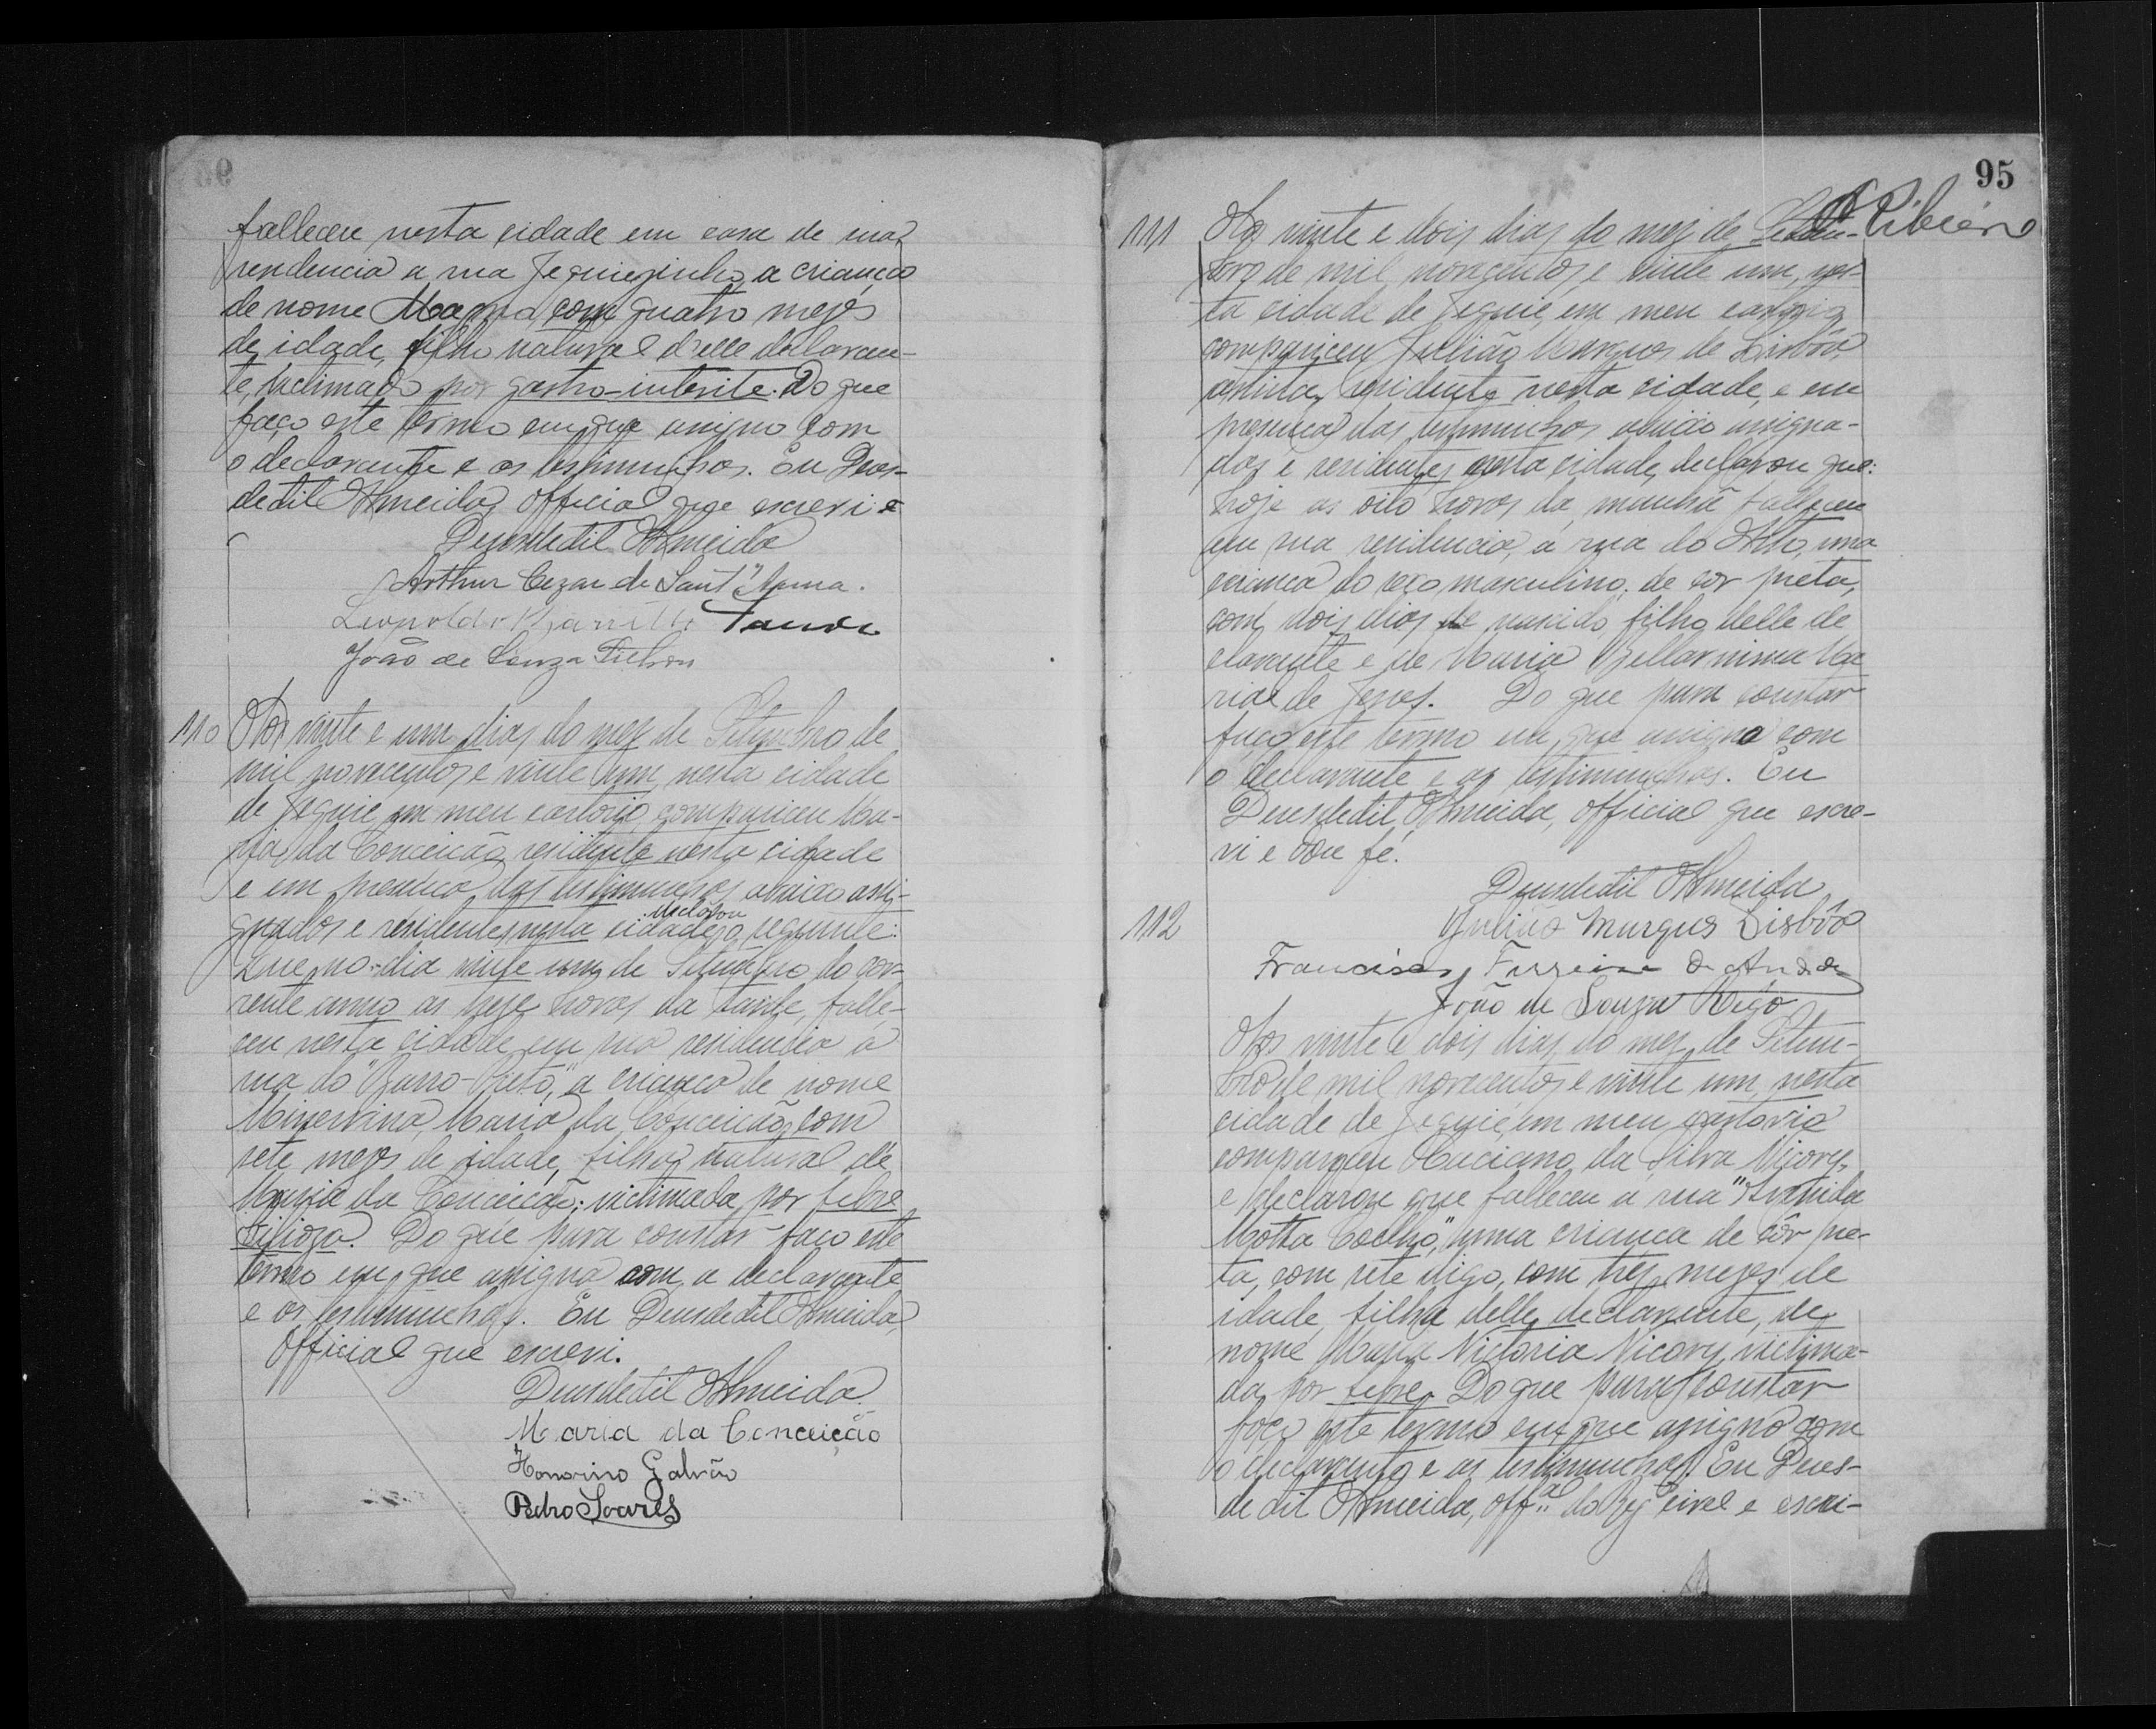 falleceu nesta cidade em casa de sua
rendencia a rua Jequiezinho, a criança
de nome Magna, com quatro mezes
de idade, filha natural delle declaran-
te, victimado por gastro-interite. Do que
faço este termo em que assigno com
o declarante e as testimunhas. Eu Deus-
dedit Almeida, official que escrevi e
Deusdedit Almeida
Arthur Cezar de Sant'Anna.
Leopoldo
João de Souza
110 Aos vinte e um dias do mez de Setembro de
mil novecentos e vinte um, nesta cidade
de Jequie em meu cartorio compareceu Ma-
ria da Conceição, residente nesta cidade
e em presença das testimunhas abaixo assi-
gnados e residentes nesta cidade, declarou o seguinte:
Que no dia vinte um de Setembro do cor-
rente anno as treze horas da tarde, falle-
ceu nesta cidade em sua residencia a
rua do "Barro-Preto," a criança de nome
Minervina Maria da Conceição, com
sete mezes de idade, filha natural de
Maria da Conceição; victimada por febre
bilioza. Do que para constar faço este
termo em que assigna com a declarante
e as testimunhas. Eu Deusdedit Almeida,
Official que escrevi.
Deusdedit Almeida.
Maria da Conceição
Honorino Galvão
Pedro Soares
95
Ribeiro
111 Aos vinte e dois dias do mez de Setem-
bro de mil novecentos e vinte um, nes-
ta cidade de Jequie, em meu cartorio
compareceu Julião Marques de Lisbôa,
artista, residente nesta cidade, e em
presença das testimunhas abaixo assigna-
das e residentes nesta cidade, declarou que:
hoje as oito horas da manhã falleceu
em sua residencia, a rua do Alto, uma
criança do sexo masculino, de cor preta,
com dois dias de nascido, filho delle de
clarante e de Maria Bellarmina Ma
ria de Jesus. Do que para constar
faço este termo em que assigno com
o declarante e as testimunhas. Eu
Deusdedit Almeida, official que escre-
vi e dou fé.
Deusdedit Almeida
Julião Marques Lisbôa
Francisco Ferreira de Andrade
João de Souza
112 Aos vinte e dois dias do mez de Setem-
bro de mil novecentos e vinte um, nesta
cidade de Jequie, em meu cartorio
compareceu Luciano da Silva Nicory,
e declarou que falleceu a rua "Avenida
Motta Coelho," uma criança de côr pre-
ta, com sete digo, com trez mezes de
idade, filha delle declarante, de
nome Maria Victoria Nicory, victima-
da por febre. Do que para constar
faço este termo em que assigno com
o declarante e as testimunhas. Eu Deus-
dedit Almeida, offal do Reg civel e escri-